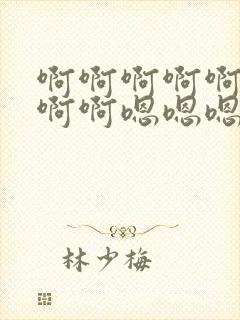 啊啊啊啊啊
啊啊嗯嗯嗯
林少梅